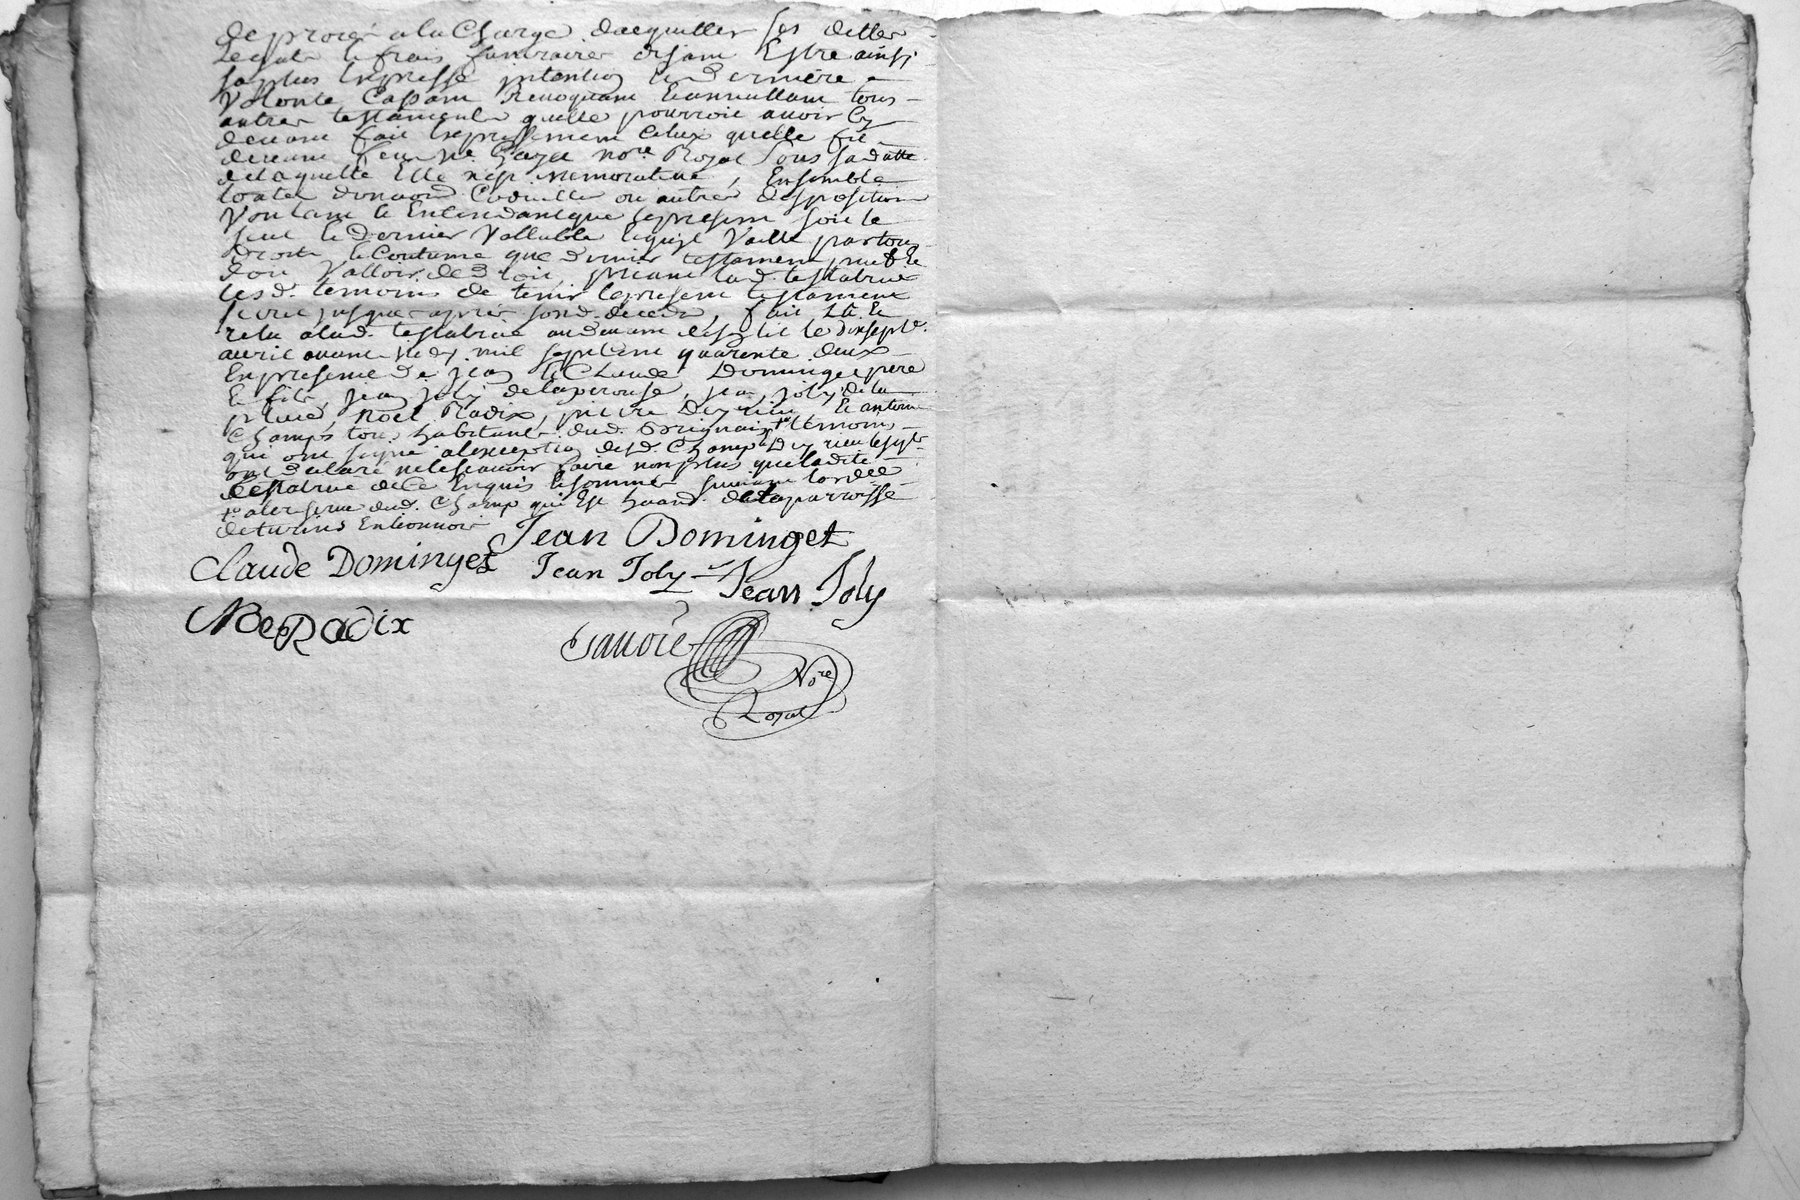 de procès a la Charge dacquitter ses dettes
Legats & frais funeraires disant Estre ainsi
sa plus Expresse intention & derniere
Volonté Cassant Revoquant & annullant tous
autres testaments quelle pourroit avoir Cy
devant fait Expressement Celux quelle fit
devant feu Me no.re Royal sous sa datte
de laquelle Elle nest memorative, Ensemble
toutes donnaõns Codicille ou autres disposition
Voulant & Entendant que le present soit le
seul & dernier Vallable & quil Vaille par tous
Droits & Coutume que dernier testament peut &
doit Valloir de droit, priant lad. testatrice
lesd. temoins de tenir le present testament
secret jusque apres sond. deceds, fait Lû &
relu a lad. testatrice au devant le dix sept.e
avril avant midy mil sept cent quarente deux
En presence de Jean & Claude Dominget pere
& fils, Jean Joly de laperouse, Jean Joly de la
place, Noel Radix, pierre & antoine
Champs tous habitants dud. temoins
qui ont signé a lexception desd. Champ &
ont declaré ne le scavoir faire non plus que ladite
testatrice de Ce Enquis & sommés suivant lordce
a la reserve dud. Champ qui Est de la parroisse
de turins En lionnois
Jean Dominget
Claude Dominget Jean Joly Jean Joly
Noe Radix
Savoie
No.re
Royal